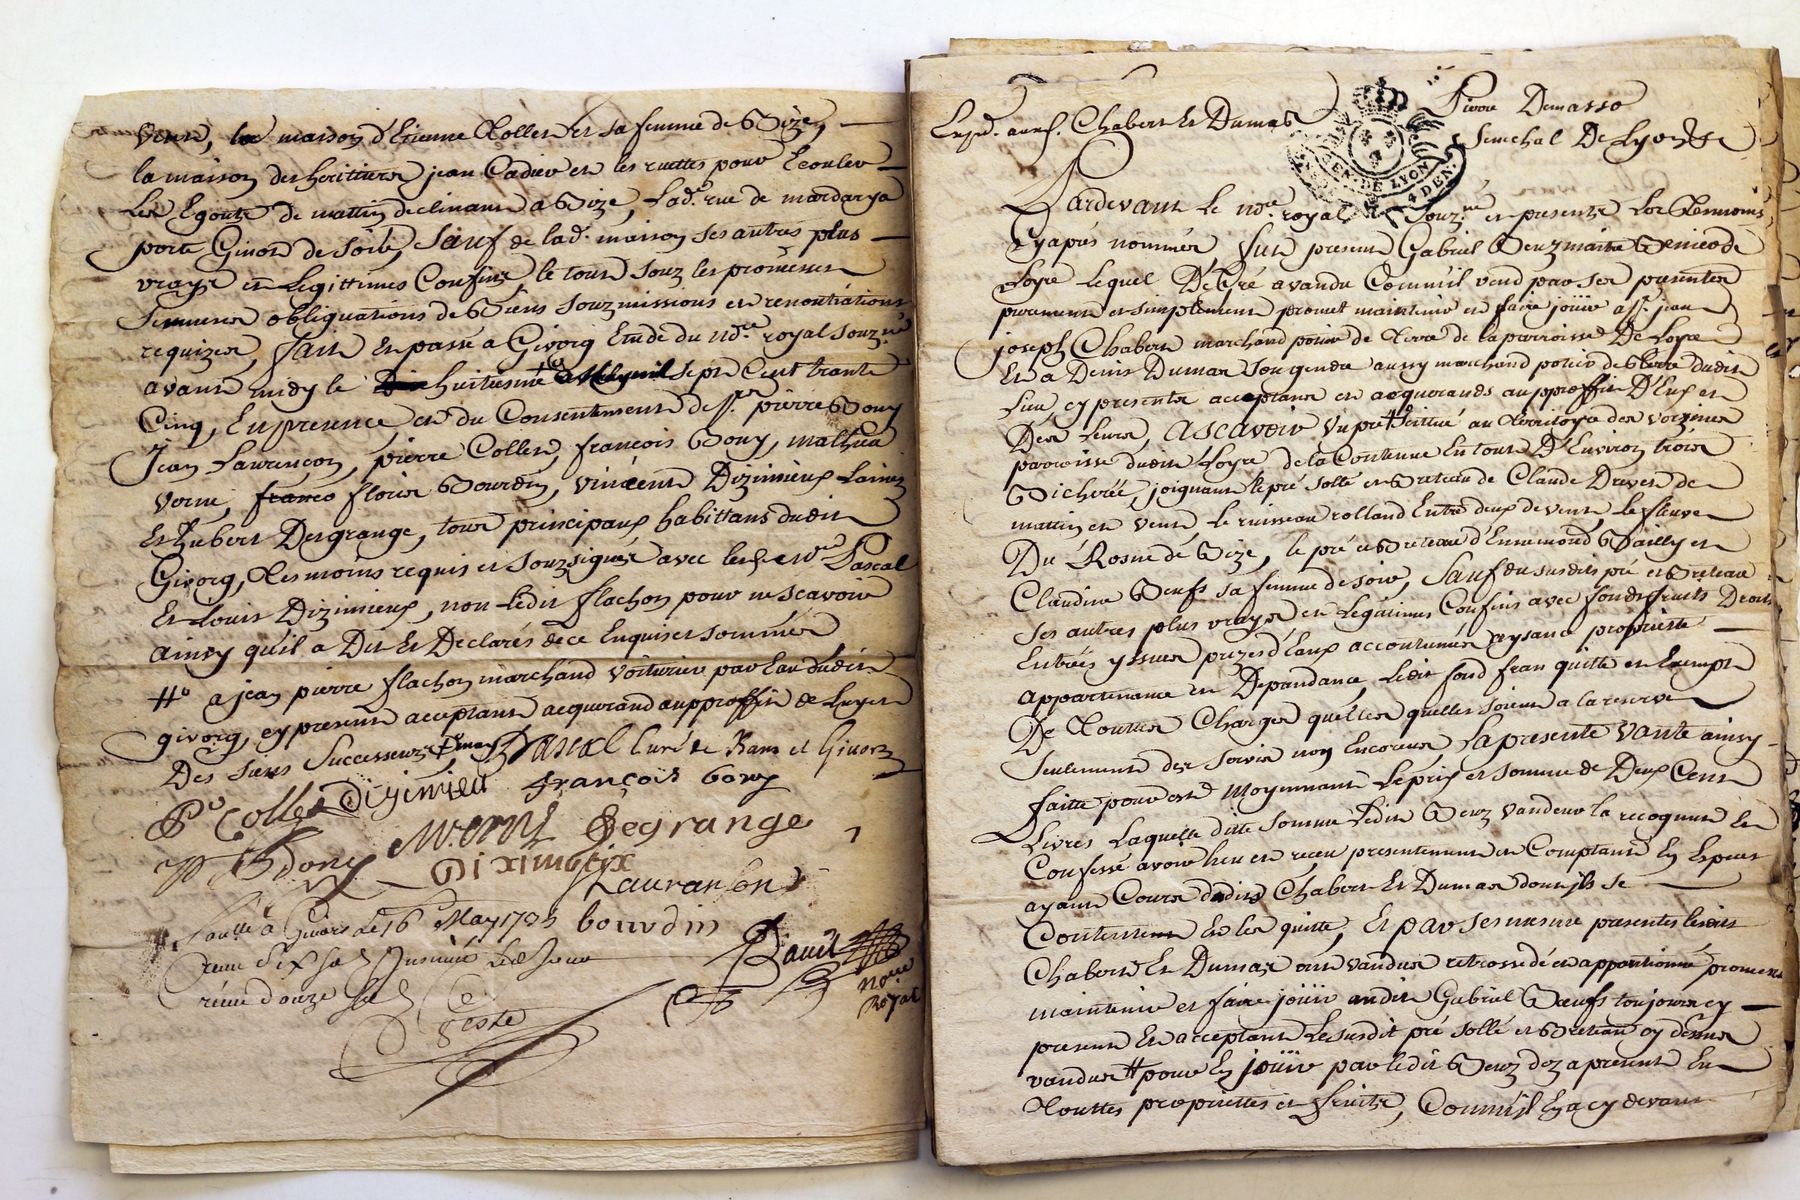 vent, la maison d'Etienne Collet et sa femme de Bize,
la maison des heritiers jean Cadier et les ruettes pour Ecouler
Les Egouts de mattin declinant a Bize, Lad. rue de
porte Givord de soir, Sauf de lad. maison ses autres plus
vrays et Legittimes Confins, le tout souz les promesses
serments obligations de Biens souzmissions et renontiations
requizes, fait et passé a Givorg Etude du no.re royal souz.né
avant midy le huitiesme sept Cent trante
Cinq, En presence et du Consentement de s.r pierre Bony
Jean Laurençon, pierre Collet, françois Bony, mathieu
verne, franco floris Bourdin, vincent Dizimieux Lainé
Et hubert Desgrange, tous principaux habittans dudit
Givorg, tesmoins requis et souzsignés avec Pascal
Et Louis Dizimieux, non Ledit flachon pour ne scavoir
ainsy qu'il a Dit Et Declarés de ce Enquis et sommés
a jean pierre flachon marchand voiturier par Eau dudit
givorg, cy present acceptant acquerand au proffit de Luy et
Des siens Successeurs Pascal Curé de Bans et Givorz
P.e Collet Dizimieu françois bony
M. verne Degrange
Bony Diximieux
Lauranson
Conllé à Givors le 16 May 1735 bourdin
receu six s. Insinué Led. Jour
receu douze s. David no.re Royal
Geste
Exped. aux s. Chabert Et Dumas Pierre Dumasso
Senechal De Lyon
GEN. DE LYON
4 DEN.
Pardevant Le no.re royal souz.né et presents Les Tesmoins
Cyaprés nommés fut present Gabriel Beuz maitre
Loyre Lequel De Gré a vandu Comm'il vend par ses presentes
purement et simplement promet maintenir et faire jouïr a s.r jean
joseph Chabert marchand potier de Terre de la parroisse De Loyre
Et a Denis Dumas son gendre aussy marchand potier de terre dudit
Lieu, cy presents acceptans et acquerands au proffit D'Eux et
Des Leurs, Ascavoir Un pré scittué au Territoyre des vorzines
parroisse dudit Loyre de la Contenue En tout D'Environ trois
Bicherée, joignant le pré sollé et Breteau de Claude Dreven de
mattin et vent, Le ruisseau rolland Entre deux de vent, Le fleuve
Du Rosne de Bize, le pré et Breteau d'Ennemond Bailly et
Claudine Beufs sa femme de soir, Sauf du susdits pré et Breteau
Ses autres plus vrays et Legitimes Confins avec fonds fruits Droits
Entrés yssues prizes d'Eaux accoutumés aysance proprieté
appartenance et Depandance, Ledit fond fran quitte et Exempt
De Touttes Charges quelles quelles soient a la reserve
seulement des servis non Encourus La presente vante ainsy
faitte pour est Moyennant Le prix et somme de Deux Cent
Livres Laquelle ditte somme Ledit Beuz vandeur la recognut Et
Confessé avoir heu et receu presentement et Comptant En Especes
ayant Cours desdits Chabert Et Dumas dont ils se
Contentent Et les quitte, Et par ses mesme presentes lesdits
Chabert Et Dumas ont vandus retrossedé et promettent
maintenir et faire jouïr audit Gabriel Beufs toujours cy
present Et acceptant Lesusdit pré sollé et Breteau cy dessus
vandus pour En jouïr par ledit Beuz dez a present En
Touttes proprietés et fruits, Comm'il En a cy devant